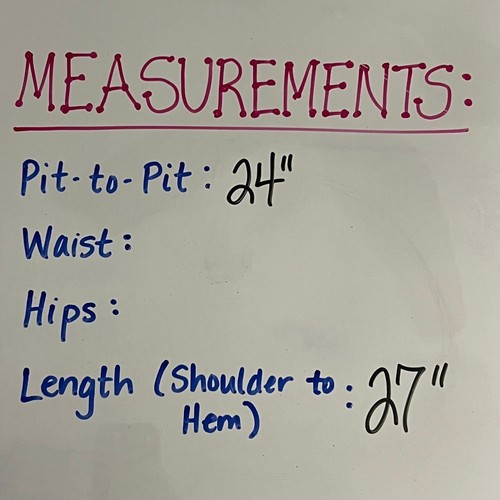 MEASUREMENTS:
Pit-to-Pit: 24"
Waist:
Hips:
Length (Shoulder to : 27"
Hem)